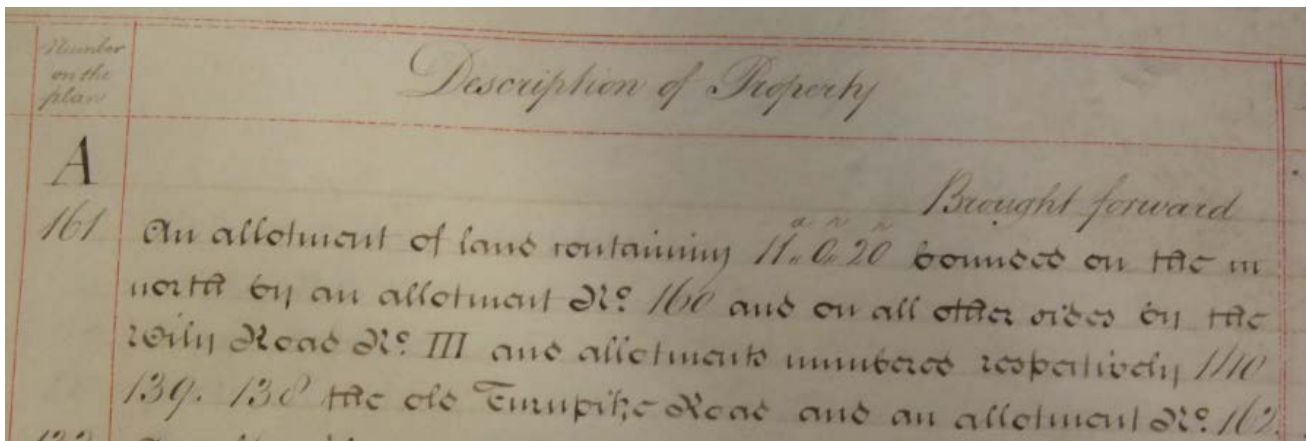 Number
on the
plan
Description of Property
A
Brought forward
a r p
161 An allotment of land containing 11 „ 0 „ 20 bounded on the
north by an allotment No. 160 and on all other sides by the
Road No. III and allotments numbered respectively 140
139. 138 the old Turnpike Road and an allotment No. 162.